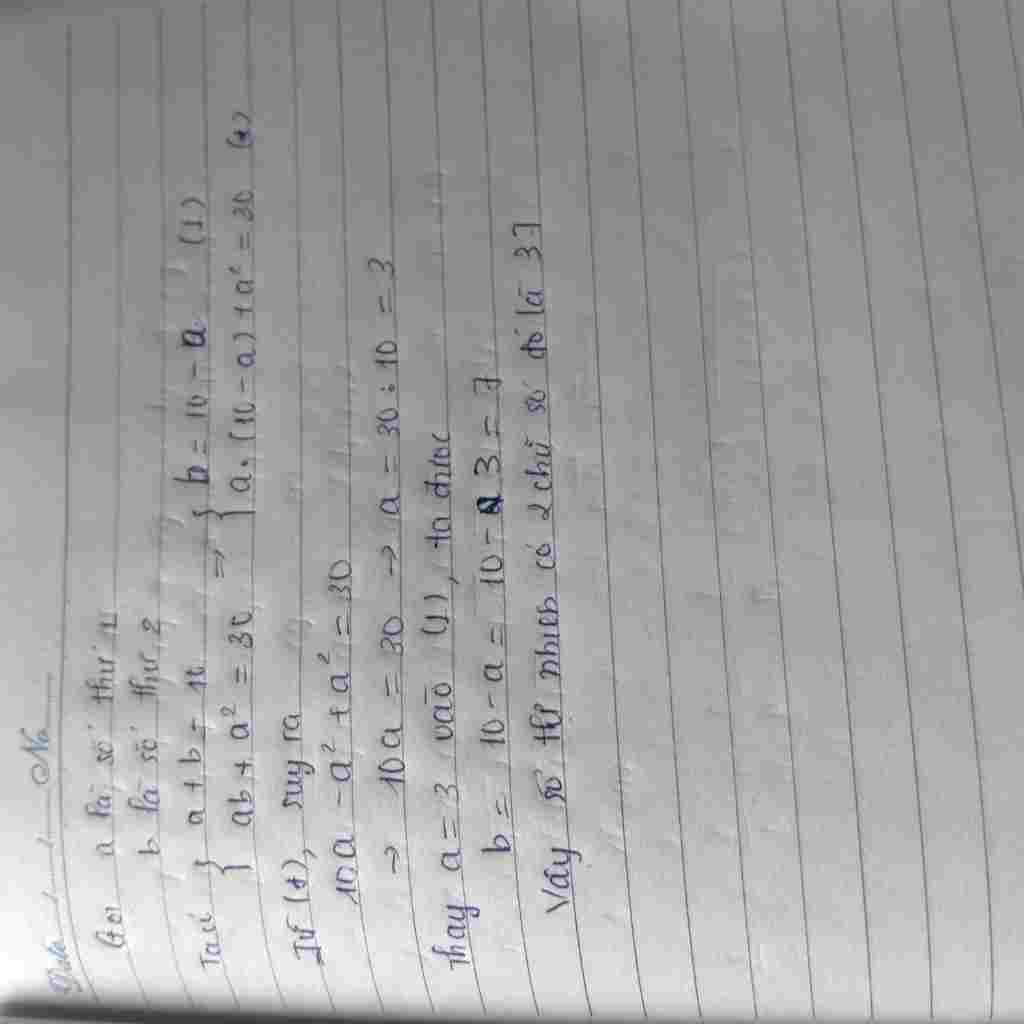 Date No
Gọi a là số thứ 1
b là số thứ 2
Ta có { a + b = 10 => { b = 10 - a (1)
{ ab + a² = 30 { a. (10 - a) + a² = 30 (*)
Từ (*), suy ra
10a - a² + a² = 30
=> 10a = 30 -> a = 30 : 10 = 3
Thay a = 3 vào (1), ta được
b = 10 - a = 10 - 3 = 7
Vậy số tự nhiên có 2 chữ số đó là 37